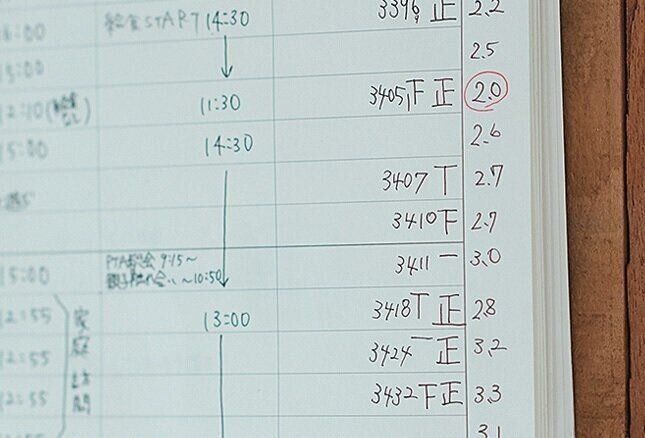 16:00 給食START 14:30 3396, 正 2.2
15:00 2.5
12:10 (給食なし) 11:30 3405, 下 正 2.0
15:00 14:30 2.6
3407 丅 2.7
3410 下 2.7
15:00 PTA総会 9:15〜 3411 一 3.0
〜10:50
12:55 家庭訪問 13:00 3418 丅 正 2.8
12:55 3424 一 正 3.2
12:55 3432 下 正 3.3
3.1